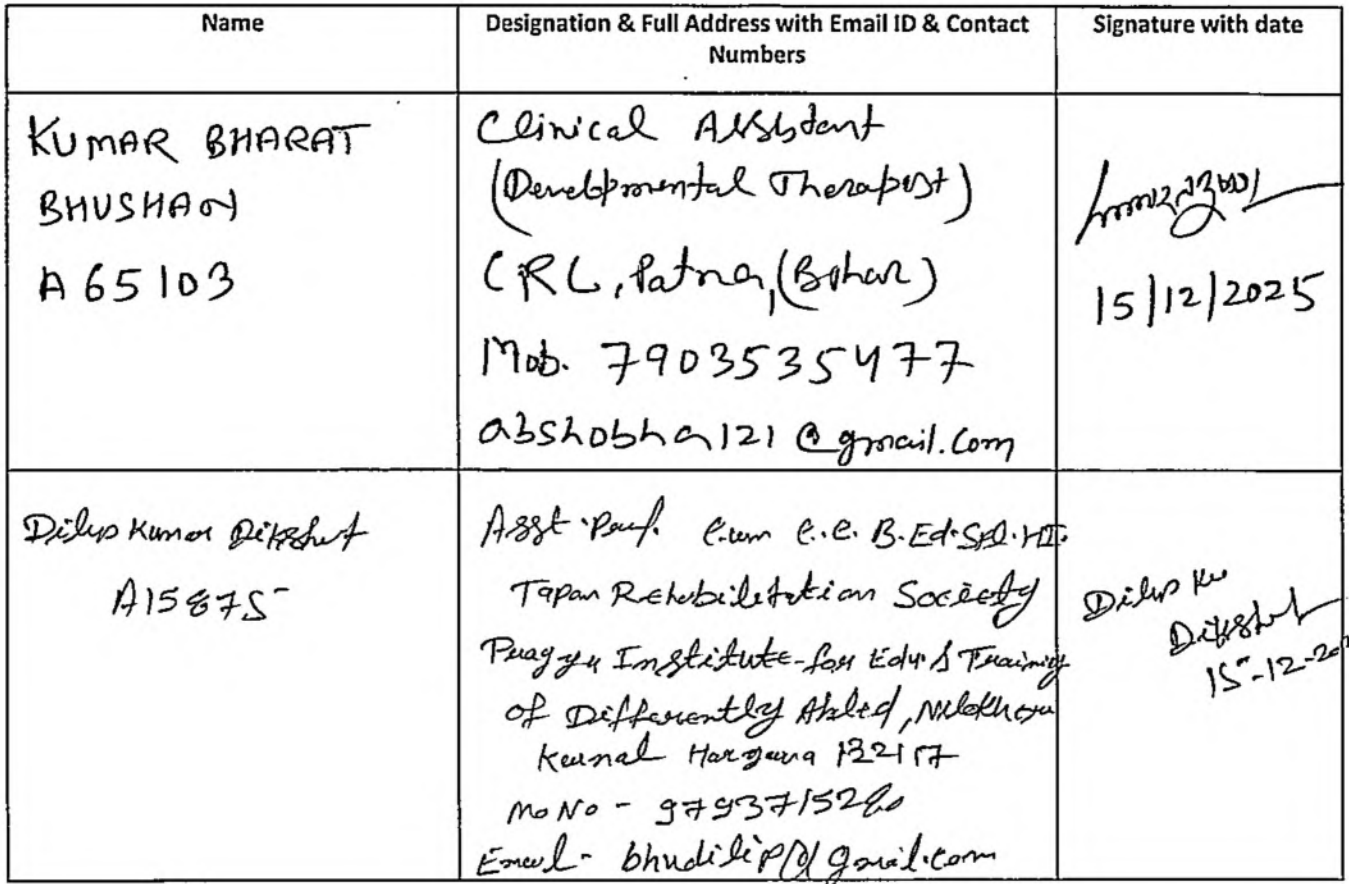 Name
Designation & Full Address with Email ID & Contact
Numbers
Signature with date
KUMAR BHARAT
BHUSHAN
A65103
Clinical Assistant
(Developmental Therapist)
CRC, Patna, (Bihar)
Mob. 7903535477
abshobha121@gmail.com
15/12/2025
Dilip Kumar Dikshit
Asst. Prof. Cum C.C. B.Ed. Spl. HI.
Tapan Rehabilitation Society
Pragya Institute for Edu & Training
of Differently Abled, Nilokheri
Karnal Haryana 132117
Mo No -
Email -
Dilip Ku
Dikshit
15-12-